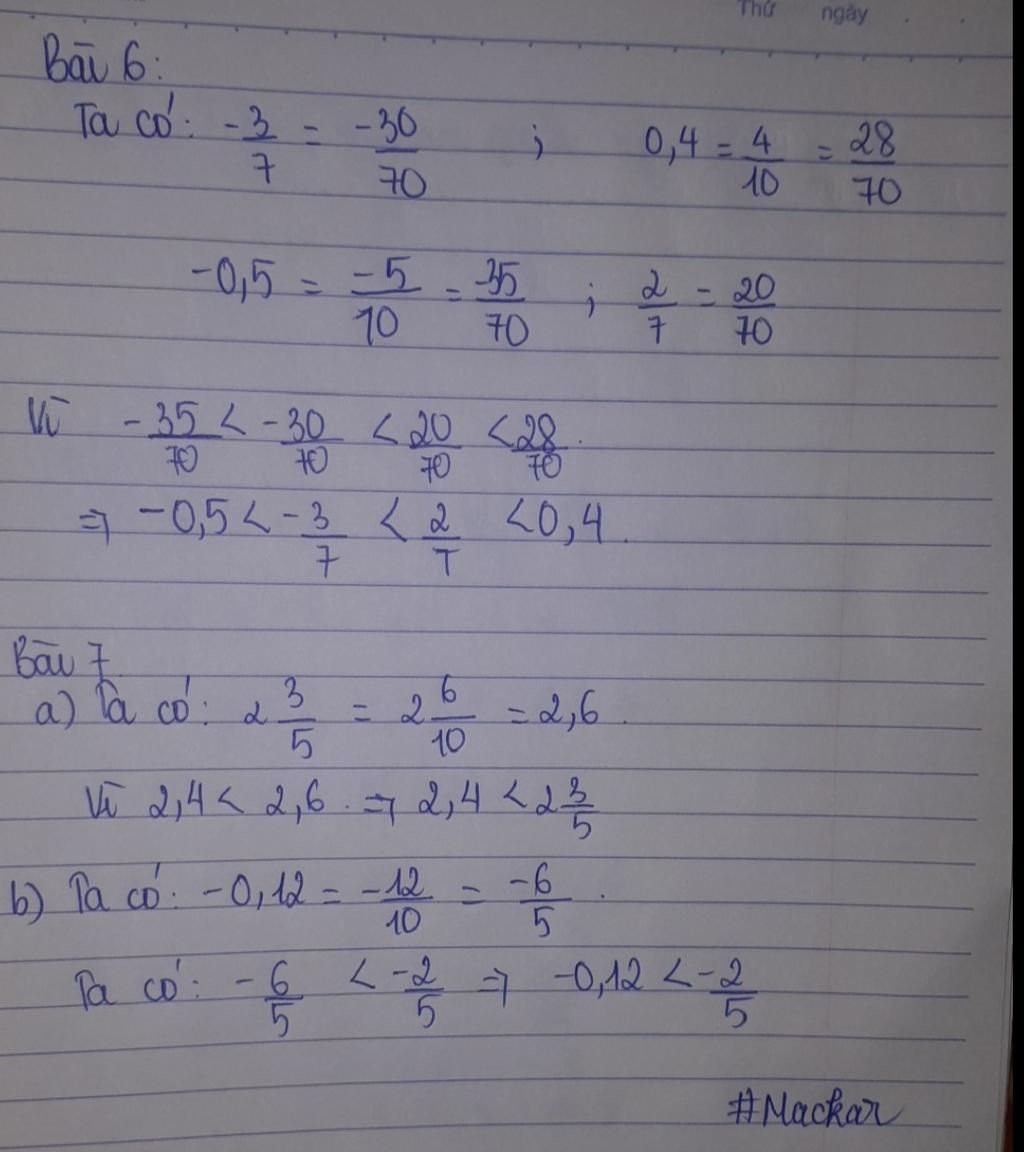 Thứ ngày
Bài 6:
Ta có: -3/7 = -30/70 ; 0,4 = 4/10 = 28/70
-0,5 = -5/10 = -35/70 ; 2/7 = 20/70
Vì -35/70 < -30/70 < 20/70 < 28/70.
=> -0,5 < -3/7 < 2/7 < 0,4.
Bài 7
a) Ta có: 2 3/5 = 2 6/10 = 2,6.
Vì 2,4 < 2,6. => 2,4 < 2 3/5
b) Ta có: -0,12 = -12/10 = -6/5.
Ta có: -6/5 < -2/5 => -0,12 < -2/5
#Mackar